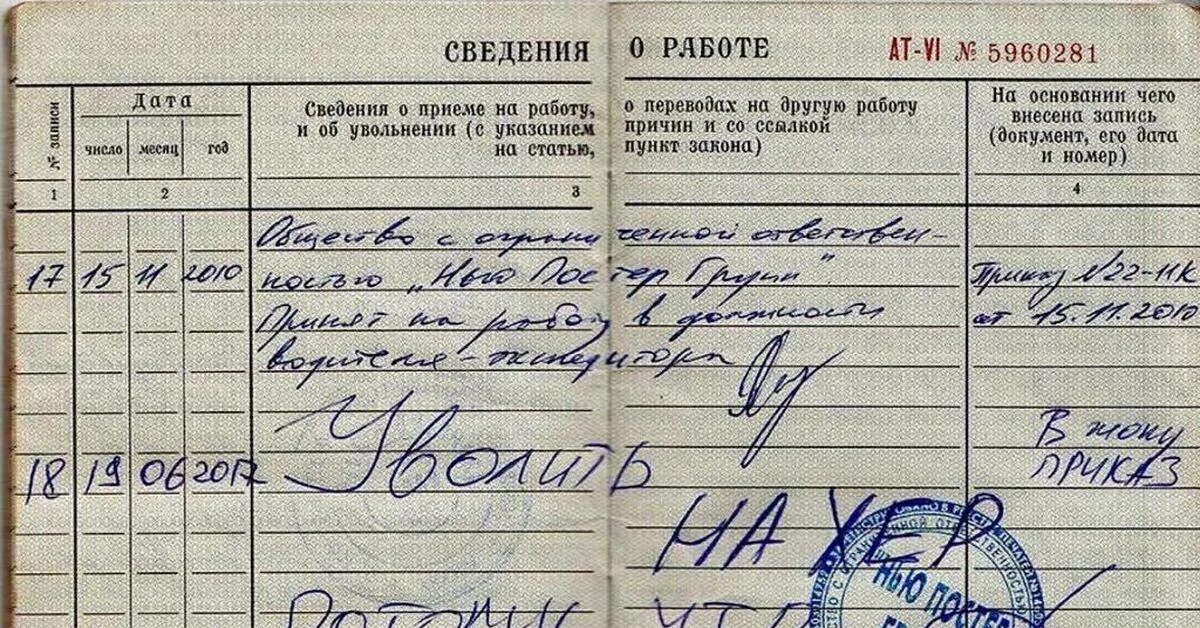 СВЕДЕНИЯ О РАБОТЕ
АТ-VI № 5960281
№ записи
Дата
число месяц год
Сведения о приеме на работу, о переводах на другую работу
и об увольнении (с указанием причин и со ссылкой
на статью, пункт закона)
На основании чего
внесена запись
(документ, его дата
и номер)
1 2 3 4
Общество с ограниченной ответствен-
17 15 11 2010 ностью „Нью Постер Групп“. Приказ №22-11К
Принят на работу в должности от 15.11.2010
водителя-экспедитора
В жопу
18 19 06 2017 Уволить ПРИКАЗ
НА ХЕР
НЬЮ ПОСТЕР
Потому что